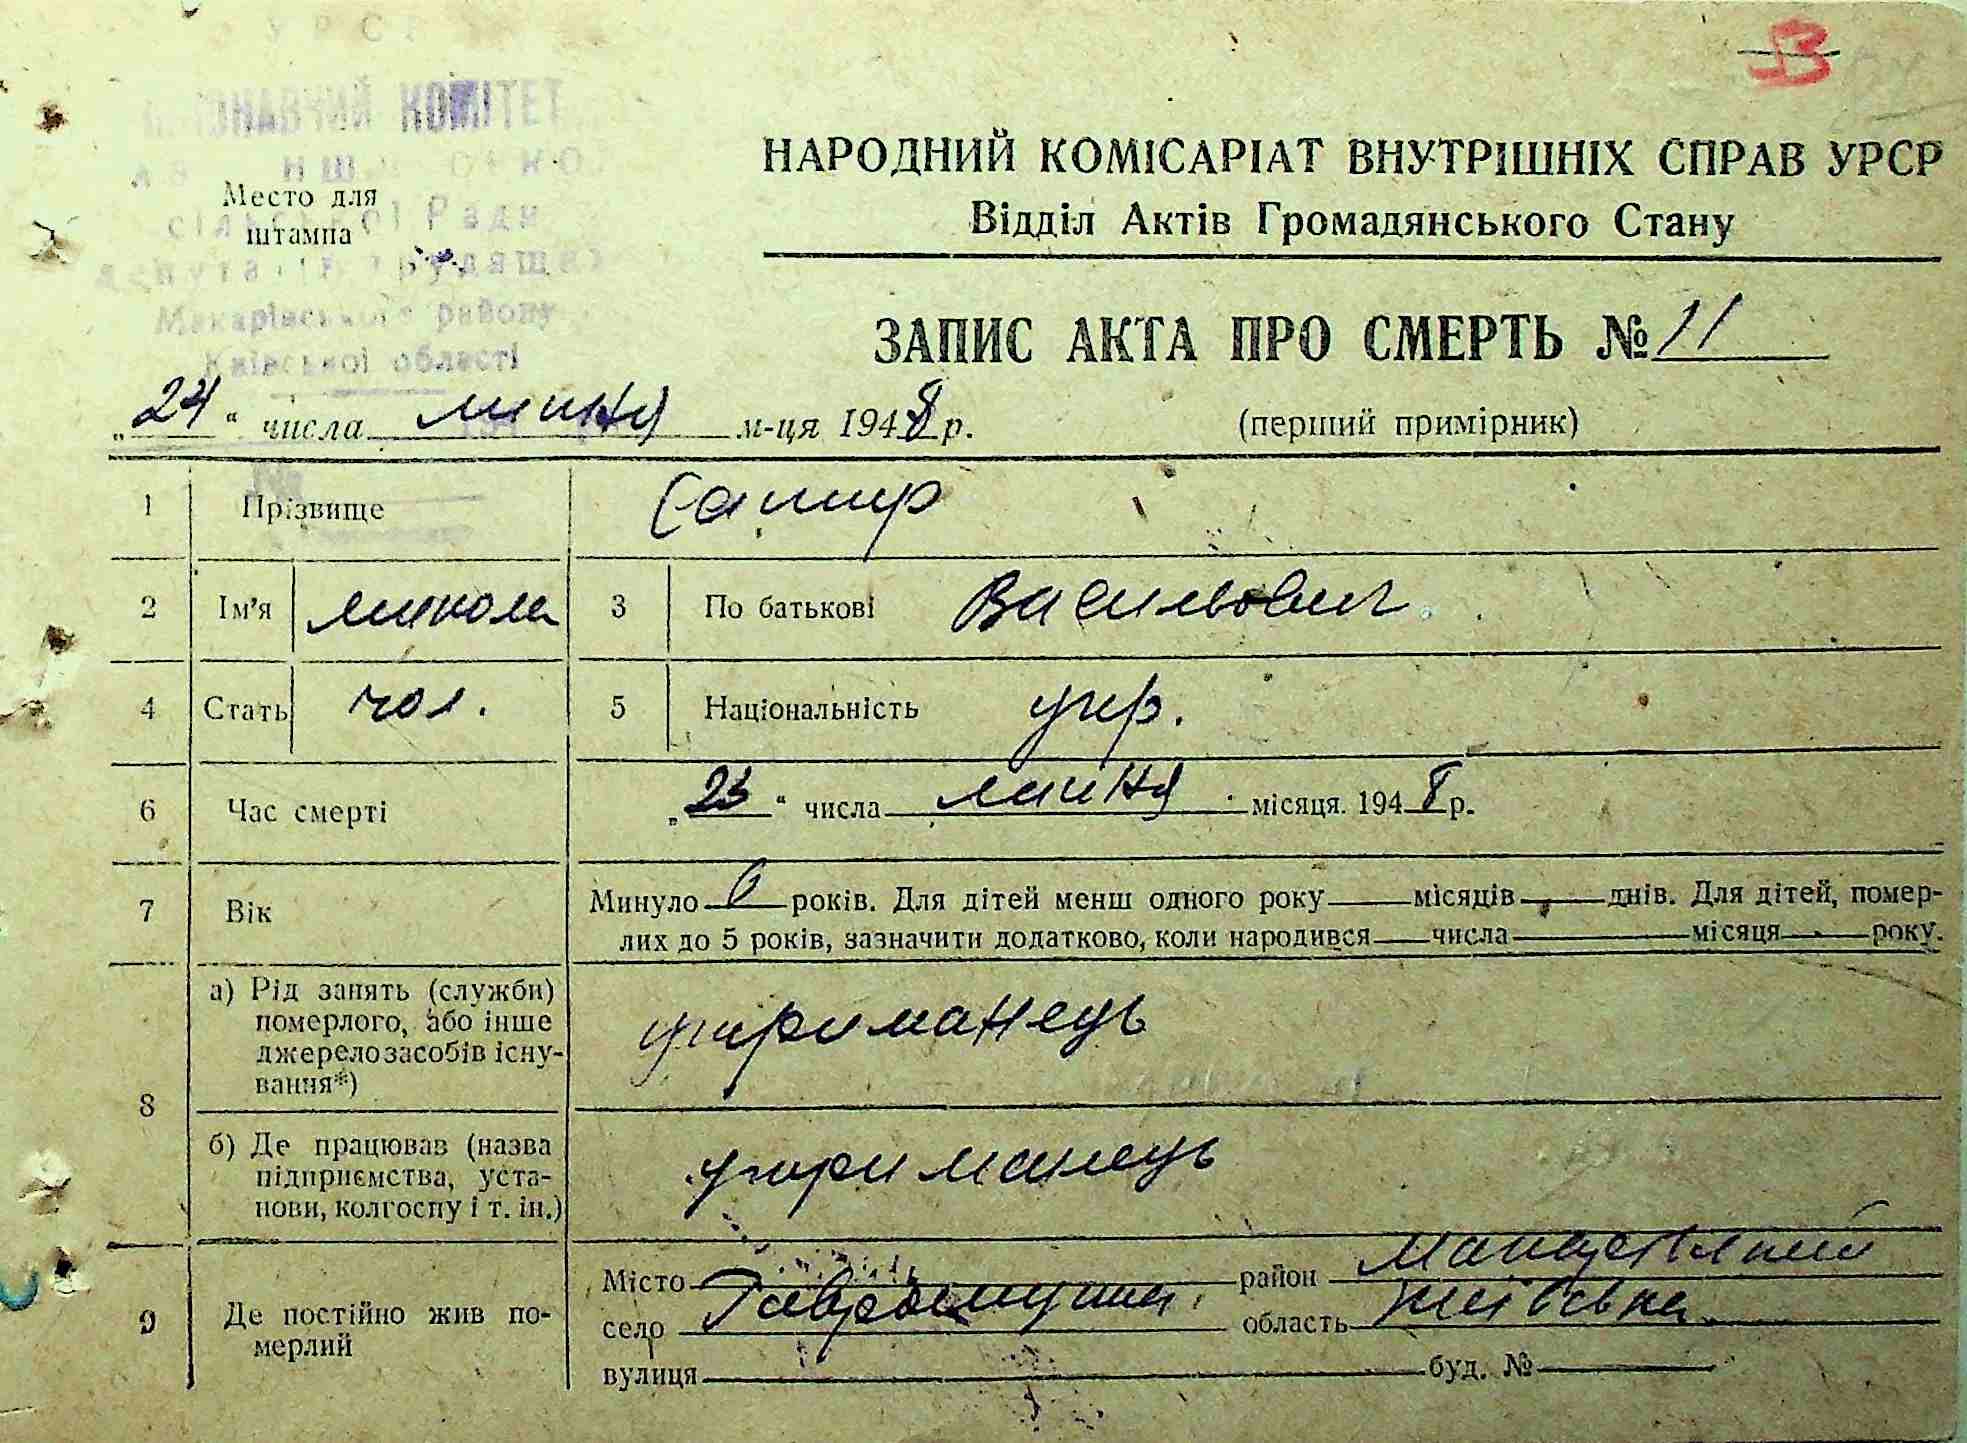 УРСР
ВИКОНАВЧИЙ КОМІТЕТ
сільської Ради
депутатів трудящих
Макарівського району
Київської області
Место для
штампа
В
НАРОДНИЙ КОМІСАРІАТ ВНУТРІШНІХ СПРАВ УРСР
Відділ Актів Громадянського Стану
ЗАПИС АКТА ПРО СМЕРТЬ № 11
„24“ числа липня м-ця 1948 р.
(перший примірник)
1 Прізвище
2 Ім'я микола 3 По батькові Васильович.
4 Стать чол. 5 Національність укр.
6 Час смерті „23“ числа липня місяця 1948 р.
7 Вік Минуло 6 років. Для дітей менш одного року місяців днів. Для дітей, помер-
лих до 5 років, зазначити додатково, коли народився числа місяця року.
8 а) Рід занять (служби)
померлого, або інше
джерело засобів існу-
вання*)
утриманець
б) Де працював (назва
підприємства, уста-
нови, колгоспу і т. ін.)
утриманець
9 Де постійно жив по-
мерлий
Місто район Макарівський
село область Київська
вулиця буд. №